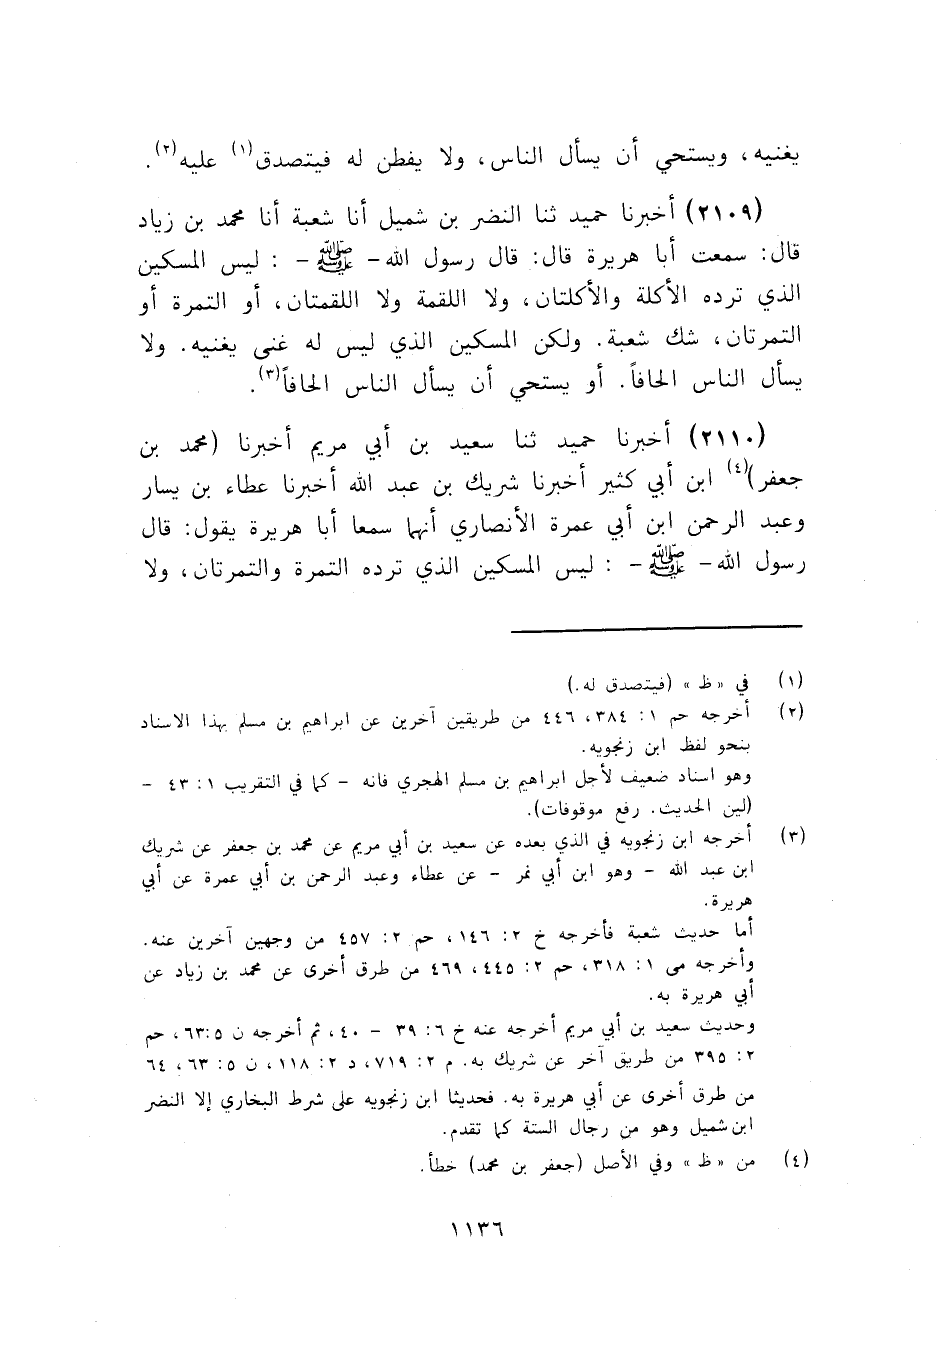 يغنيه، ويستحي أن يسأل الناس، ولا يفطن له فيتصدق(١) عليه(٢).
(٢١٠٩) أخبرنا حميد ثنا النضر بن شميل أنا شعبة أنا محمد بن زياد
قال: سمعت أبا هريرة قال: قال رسول الله - ﷺ - : ليس المسكين
الذي ترده الأكلة والأكلتان، ولا اللقمة ولا اللقمتان، أو التمرة أو
التمرتان، شك شعبة. ولكن المسكين الذي ليس له غنى يغنيه. ولا
يسأل الناس الحافاً. أو يستحي أن يسأل الناس الحافاً(٣).
(٢١١٠) أخبرنا حميد ثنا سعيد بن أبي مريم أخبرنا (محمد بن
جعفر)(٤) ابن أبي كثير أخبرنا شريك بن عبد الله أخبرنا عطاء بن يسار
وعبد الرحمن ابن أبي عمرة الأنصاري أنهما سمعا أبا هريرة يقول: قال
رسول الله - ﷺ - : ليس المسكين الذي ترده التمرة والتمرتان، ولا
(١) في «ظ» (فيتصدق له.)
(٢) أخرجه حم ١: ٣٨٤، ٤٤٦ من طريقين آخرين عن ابراهيم بن مسلم بهذا الاسناد
بنحو لفظ ابن زنجويه.
وهو اسناد ضعيف لأجل ابراهيم بن مسلم الهجري فانه - كما في التقريب ١: ٤٣ -
(لين الحديث. رفع موقوفات).
(٣) أخرجه ابن زنجويه في الذي بعده عن سعيد بن أبي مريم عن محمد بن جعفر عن شريك
ابن عبد الله - وهو ابن أبي نمر - عن عطاء وعبد الرحمن بن أبي عمرة عن أبي
هريرة.
أما حديث شعبة فأخرجه خ ٢: ١٤٦، حم ٢: ٤٥٧ من وجهين آخرين عنه.
وأخرجه مى ١: ٣١٨، حم ٢: ٤٤٥، ٤٦٩ من طرق أخرى عن محمد بن زياد عن
أبي هريرة به.
وحديث سعيد بن أبي مريم أخرجه عنه خ ٦: ٣٩ - ٤٠، ثم أخرجه ن ٦٣:٥، حم
٢: ٣٩٥ من طريق آخر عن شريك به. م ٢: ٧١٩، د ٢: ١١٨، ن ٥: ٦٣، ٦٤
من طرق أخرى عن أبي هريرة به. فحديثا ابن زنجويه على شرط البخاري إلا النضر
ابن شميل وهو من رجال الستة كما تقدم.
(٤) من «ظ» وفي الأصل (جعفر بن محمد) خطأ.
١١٣٦